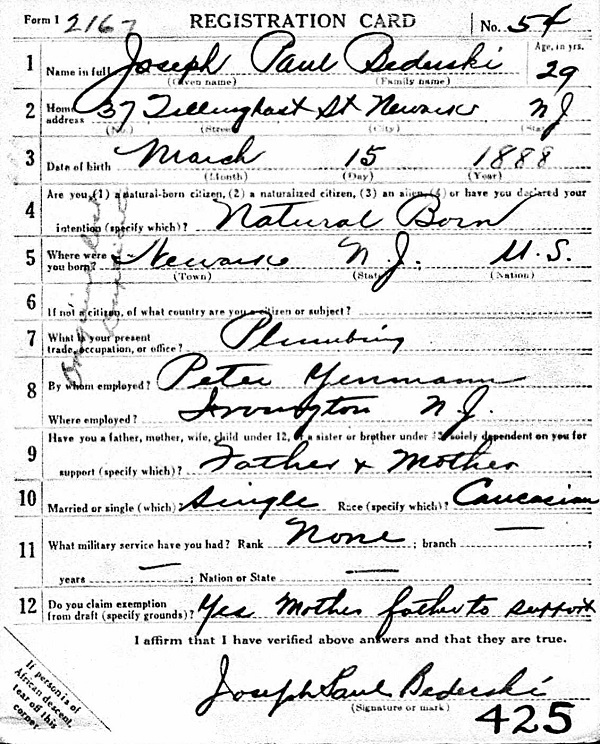 Form 1 2167 REGISTRATION CARD No. 54
1 Name in full Joseph Paul Bederski Age, in yrs. 29
(Given name) (Family name)
2 Home address 37 Tillinghast St Newark N J
(No.) (Street) (City) (State)
3 Date of birth March 15 1888
(Month) (Day) (Year)
4 Are you (1) a natural-born citizen, (2) a naturalized citizen, (3) an alien, (4) or have you declared your
intention (specify which)? Natural Born
5 Where were you born? Newark N.J. U.S.
(Town) (State) (Nation)
6 If not a citizen, of what country are you a citizen or subject?
7 What is your present trade, occupation, or office? Plumbing
8 By whom employed? Peter
Where employed? Irvington N.J.
9 Have you a father, mother, wife, child under 12, or a sister or brother under 12, solely dependent on you for
support (specify which)? Father & Mother
10 Married or single (which)? Single Race (specify which)? Caucasian
11 What military service have you had? Rank None ; branch — ;
years — ; Nation or State —
12 Do you claim exemption from draft (specify grounds)? Yes Mother father to support
I affirm that I have verified above answers and that they are true.
Joseph Paul Bederski
(Signature or mark)
If person is of
African descent,
tear off this
corner
425